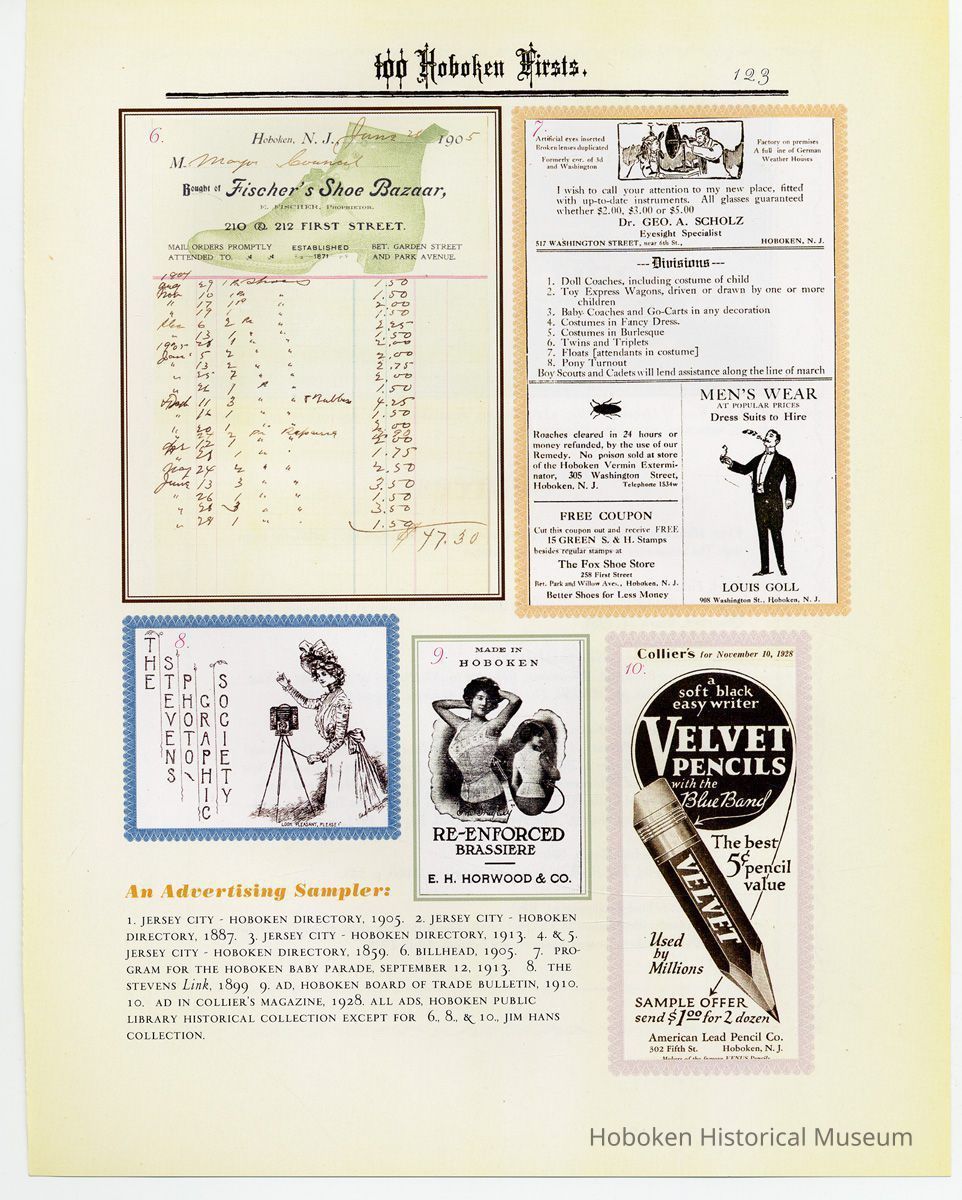 100 Hoboken Firsts.
123
6.
Hoboken, N. J., June 1905
M. Mayor Council
Bought of Fischer's Shoe Bazaar,
E. FISCHER, PROPRIETOR.
210 & 212 FIRST STREET.
MAIL ORDERS PROMPTLY ATTENDED TO.
ESTABLISHED 1871
BET. GARDEN STREET AND PARK AVENUE.
29 1 Shoes 1.50
10 1 " 1.50
" 17 1 " 2.00
" 19 1 1.50
6 2 " 2.25
" 13 1 " 1.50
1 " 2.00
5 2 " 2.00
" 13 2 " 2.75
" 25 2 " 2.00
" 26 1 " 1.50
11 3 " " & Rubbers 4.25
" 16 1 " 1.50
" 20 1 " 2.00
12 1 " 2.00
" 25 1 " 1.75
May 24 2 " " 2.50
June 13 3 " " 3.50
" 26 1 " " 1.50
" 28 3 " " 3.50
" 29 1 " " 1.50
$ 47.30
7.
Artificial eyes inserted
Broken lenses duplicated
Formerly cor. of 3d
and Washington
Factory on premises
A full line of German
Weather Houses
I wish to call your attention to my new place, fitted
with up-to-date instruments. All glasses guaranteed
whether $2.00, $3.00 or $5.00
Dr. GEO. A. SCHOLZ
Eyesight Specialist
517 WASHINGTON STREET, near 6th St., HOBOKEN, N. J.
--- Divisions ---
1. Doll Coaches, including costume of child
2. Toy Express Wagons, driven or drawn by one or more
children
3. Baby Coaches and Go-Carts in any decoration
4. Costumes in Fancy Dress.
5. Costumes in Burlesque
6. Twins and Triplets
7. Floats [attendants in costume]
8. Pony Turnout
Boy Scouts and Cadets will lend assistance along the line of march
Roaches cleared in 24 hours or
money refunded, by the use of our
Remedy. No poison sold at store
of the Hoboken Vermin Extermi-
nator, 305 Washington Street,
Hoboken, N. J. Telephone 1534w
FREE COUPON
Cut this coupon out and receive FREE
15 GREEN S. & H. Stamps
besides regular stamps at
The Fox Shoe Store
258 First Street
Bet. Park and Willow Aves., Hoboken, N. J.
Better Shoes for Less Money
MEN'S WEAR
AT POPULAR PRICES
Dress Suits to Hire
LOUIS GOLL
908 Washington St., Hoboken, N. J.
8.
THE
STEVENS
PHOTO-
GRAPHIC
SOCIETY
"LOOK PLEASANT, PLEASE!"
9.
MADE IN
HOBOKEN
RE-ENFORCED
BRASSIERE
E. H. HORWOOD & CO.
10.
Collier's for November 10, 1928
a
soft black
easy writer
VELVET
PENCILS
with the
Blue Band
The best
5¢ pencil
value
VELVET
Used
by
Millions
SAMPLE OFFER
send $1.00 for 2 dozen
American Lead Pencil Co.
302 Fifth St. Hoboken, N. J.
Makers of the famous VENUS Pencils
An Advertising Sampler:
1. JERSEY CITY - HOBOKEN DIRECTORY, 1905. 2. JERSEY CITY - HOBOKEN
DIRECTORY, 1887. 3. JERSEY CITY - HOBOKEN DIRECTORY, 1913. 4. & 5.
JERSEY CITY - HOBOKEN DIRECTORY, 1859. 6. BILLHEAD, 1905. 7. PRO-
GRAM FOR THE HOBOKEN BABY PARADE, SEPTEMBER 12, 1913. 8. THE
STEVENS Link, 1899 9. AD, HOBOKEN BOARD OF TRADE BULLETIN, 1910.
10. AD IN COLLIER'S MAGAZINE, 1928. ALL ADS, HOBOKEN PUBLIC
LIBRARY HISTORICAL COLLECTION EXCEPT FOR 6., 8., & 10., JIM HANS
COLLECTION.
Hoboken Historical Museum